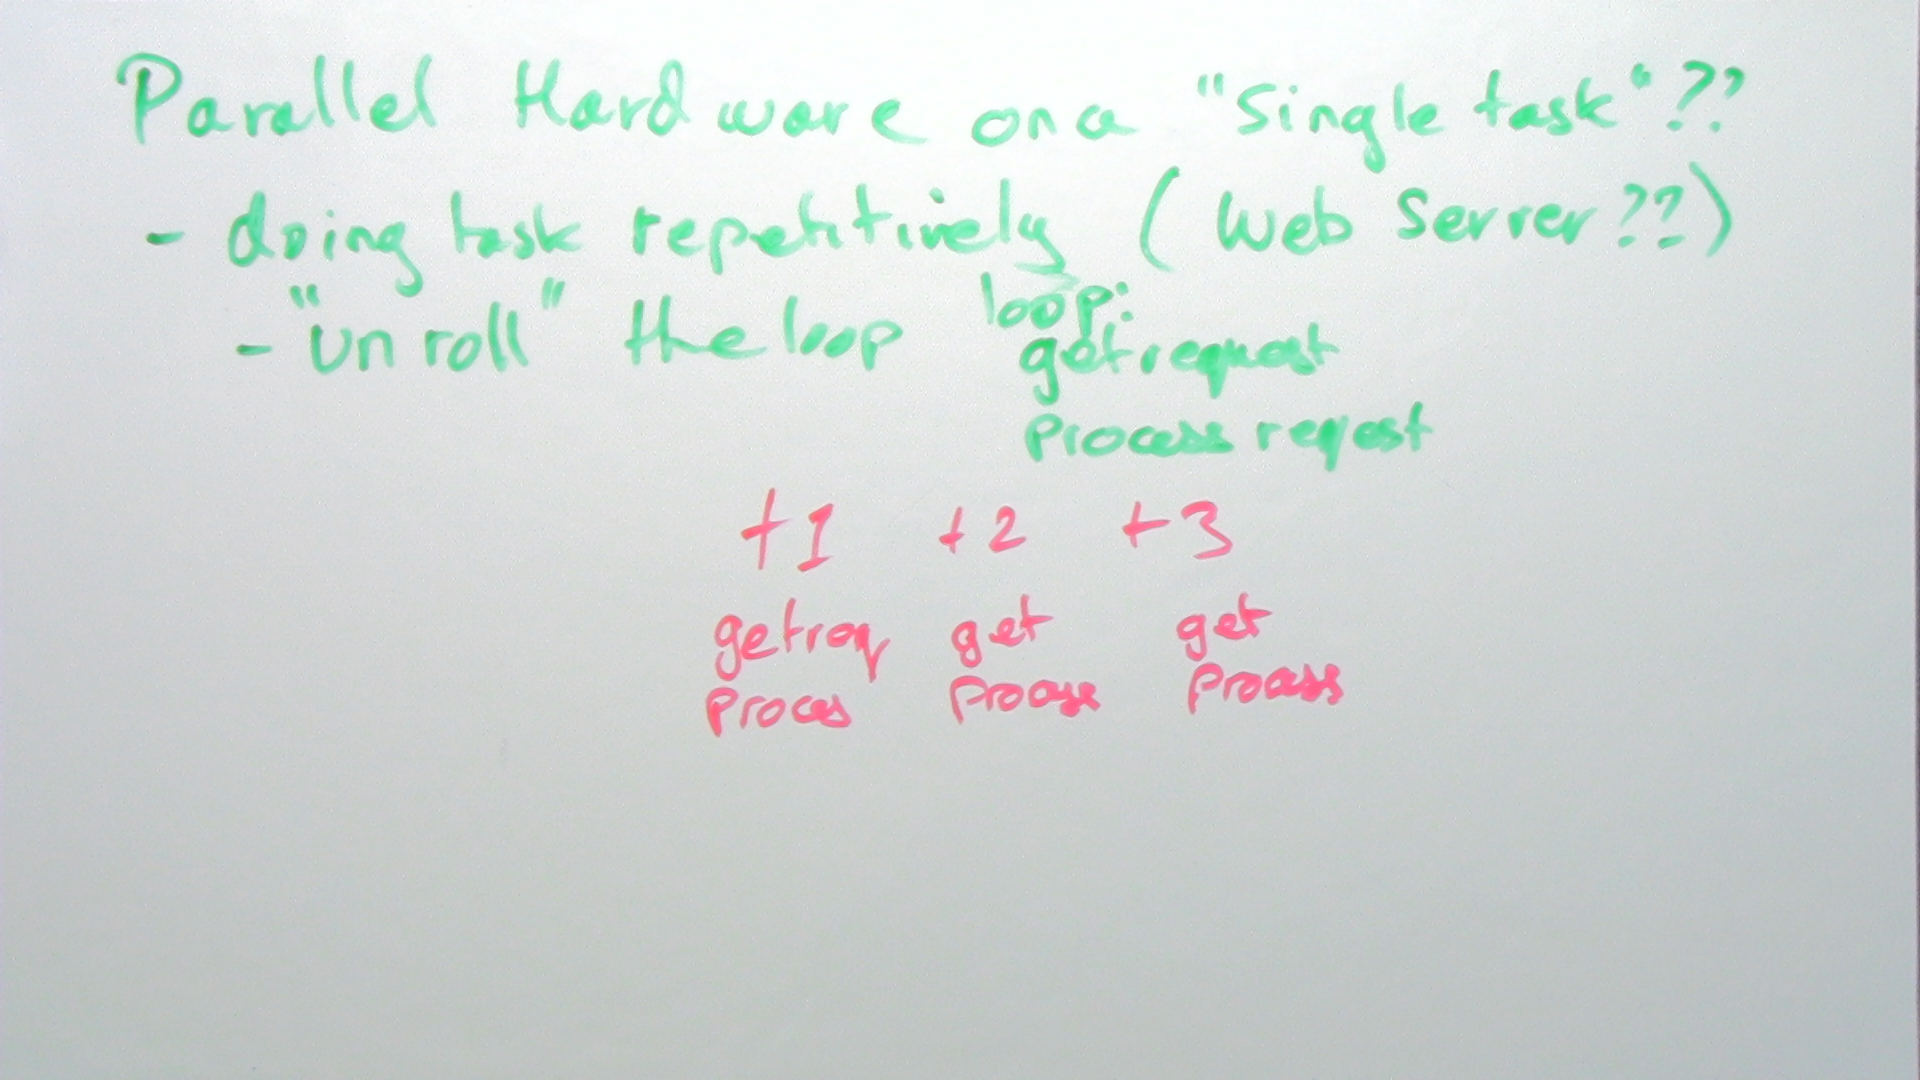 Parallel Hardware on a "Single task"??
- doing task repetitively (Web Server??)
- "unroll" the loop
loop:
get request
process reqest
t1 t2 t3
getreq get get
proces process process